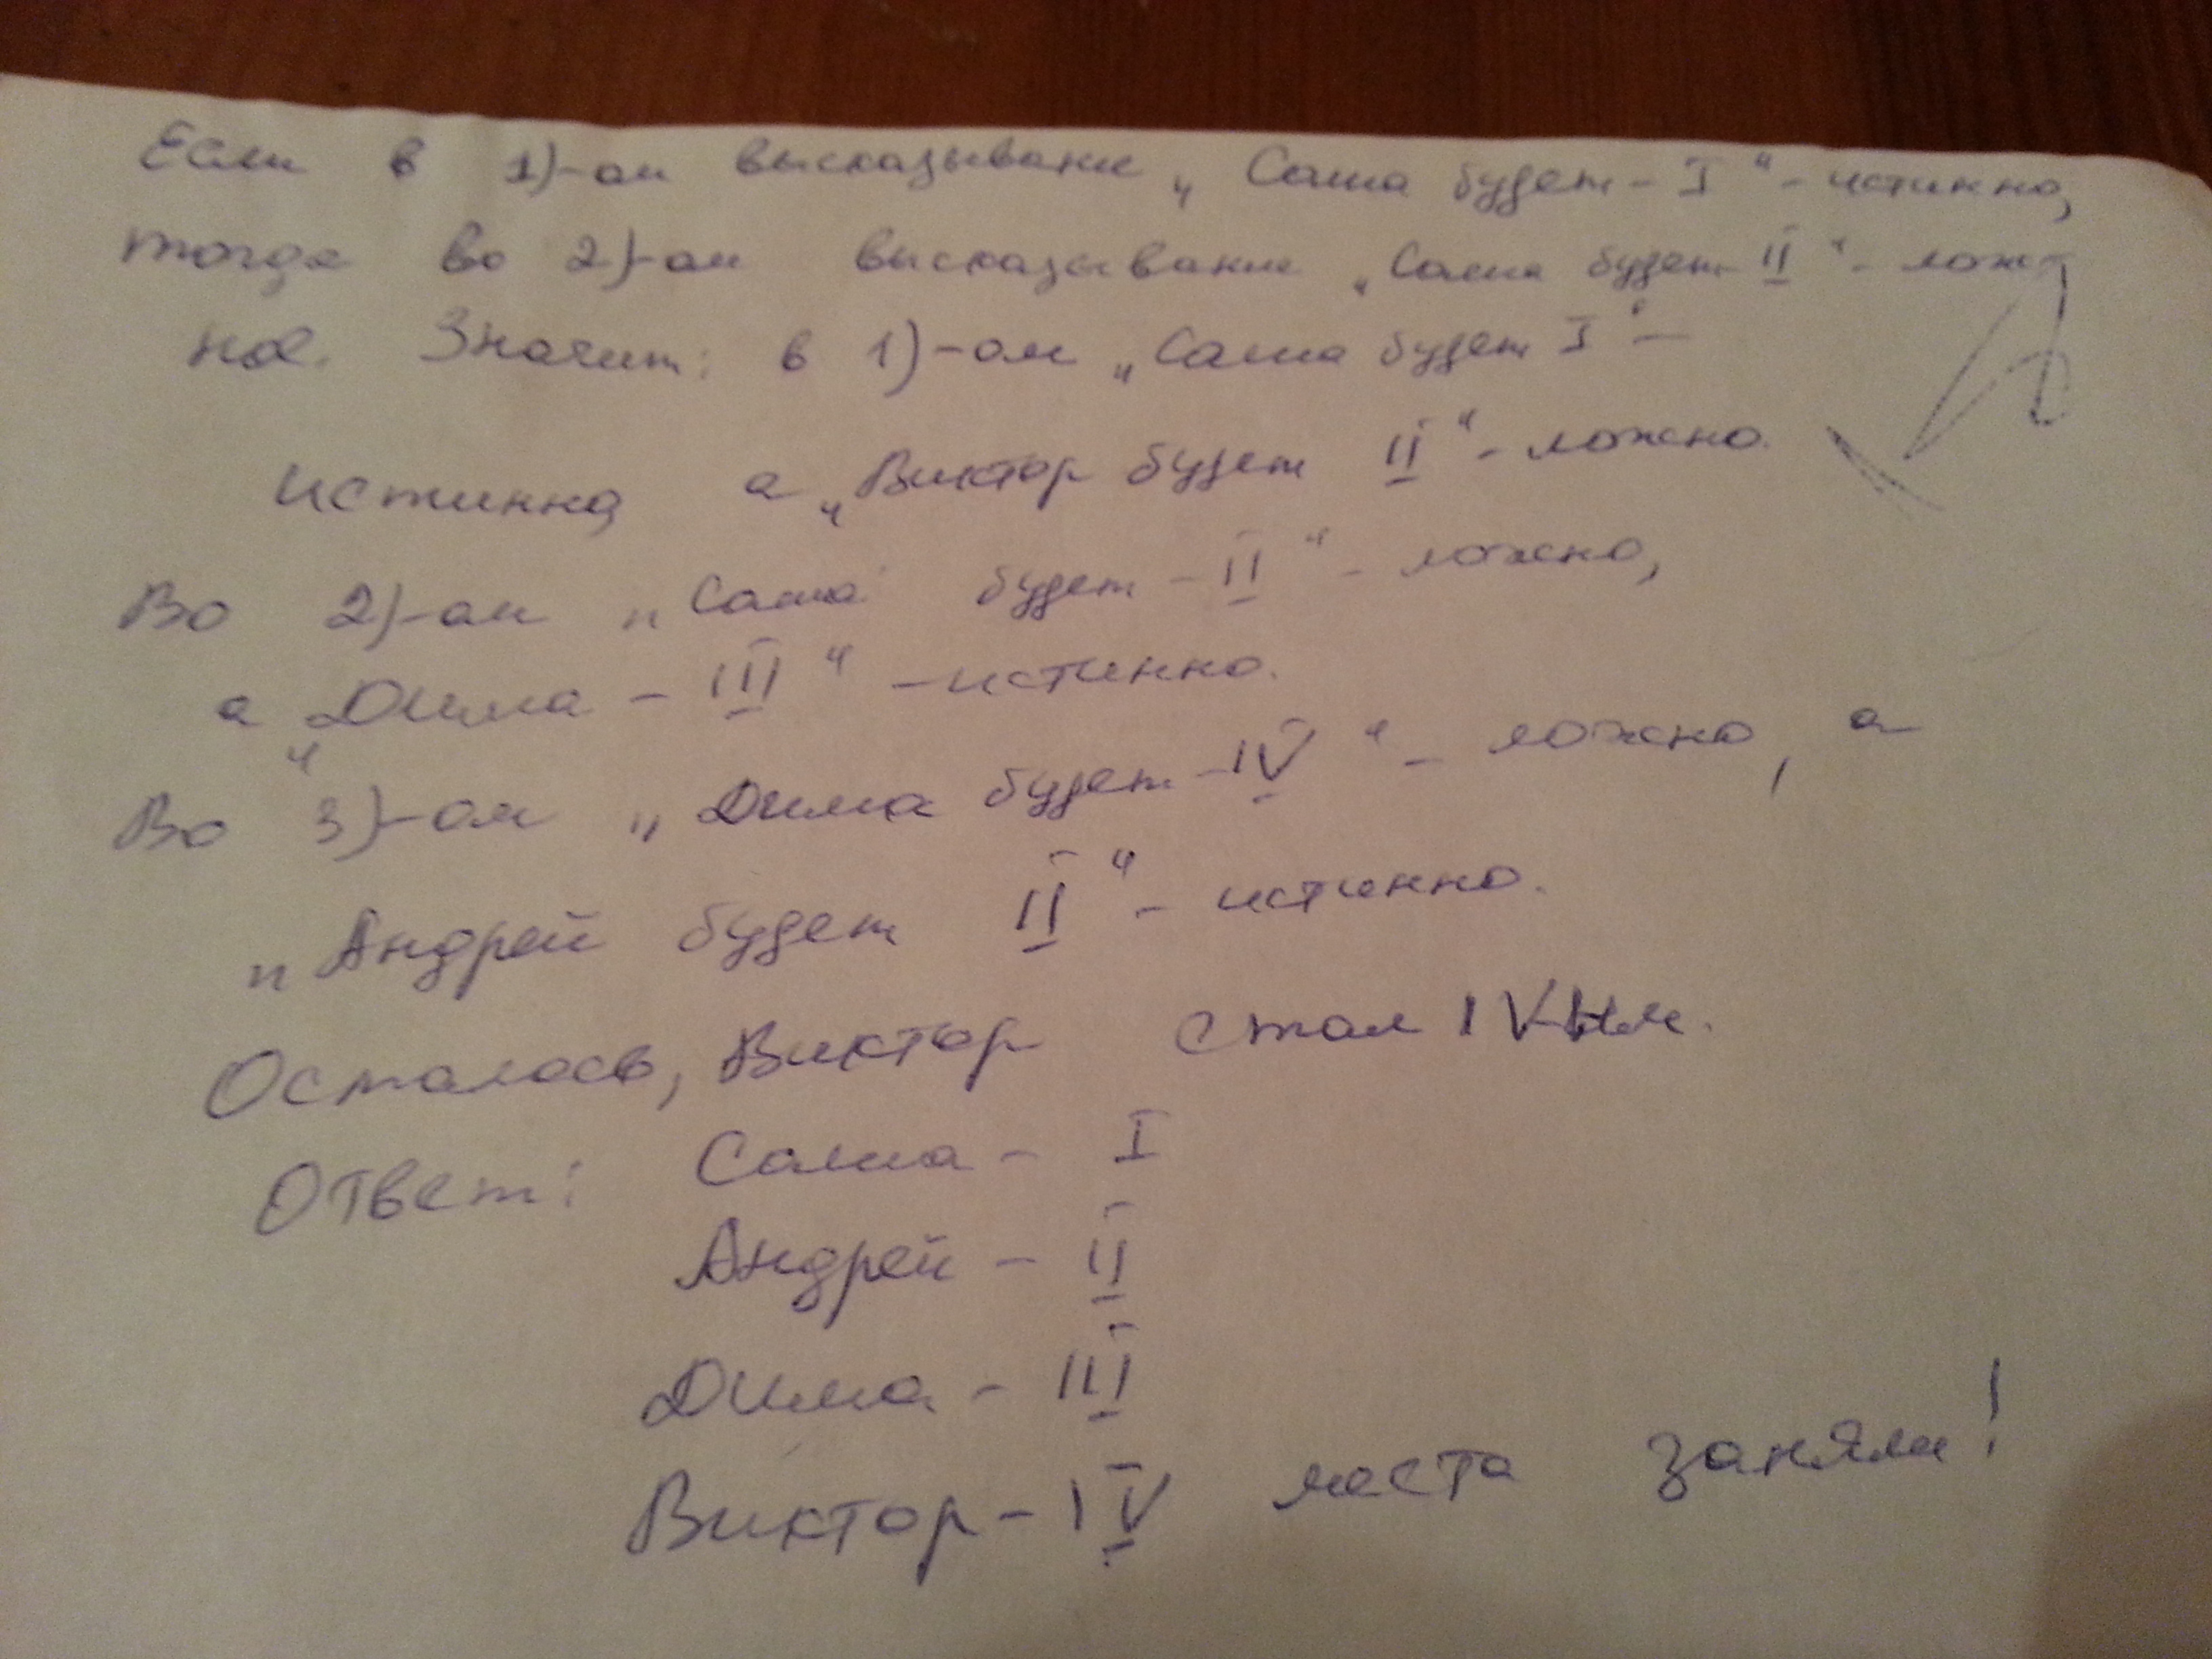 Если в 1)-ом высказывание „Саша будет - I“ - истинно,
тогда во 2)-ом высказывание „Саша будет II“ - лож-
но. Значит: в 1)-ом „Саша будет I“ -
истинно, а „Виктор будет II“ - ложно.
Во 2)-ом „Саша будет - II“ - ложно,
а „Дима - III“ - истинно.
Во 3)-ом „Дима будет - IV“ - ложно, а
„Андрей будет II“ - истинно.
Осталось, Виктор стал IV-ым.
Ответ: Саша - I
Андрей - II
Дима - III
Виктор - IV места заняли!